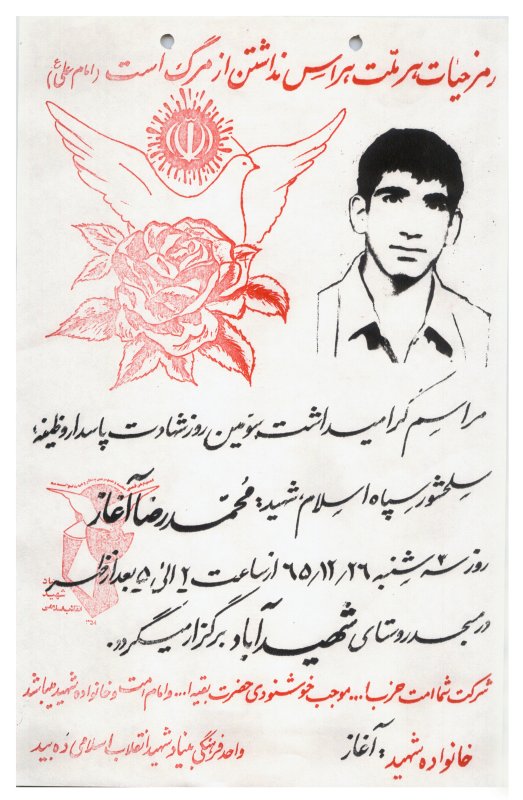 رمز حیات هر ملّت هراس نداشتن از مرگ است (امام علی ع)
مراسم گرامیداشت سومین روز شهادت پاسدار وظیفه؛
سلحشور سپاه اسلام شهید: محمدرضا آغاز
روز سه شنبه ۶۵٫۱۲٫۲۶ از ساعت ۲ الی ۵ بعد از ظهر
در مسجد روستای شهیدآباد برگزار میگردد.
شرکت شما امت حزب ا... موجب خوشنودی حضرت بقیه ا... و امام امت و خانواده شهید میباشد
خانواده شهید: آغاز
واحد فرهنگی بنیاد شهید انقلاب اسلامی ده بید
شهید